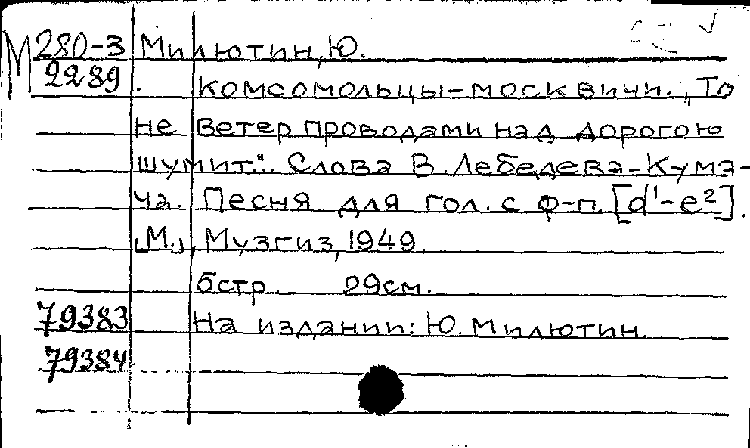 М 280-3 Милютин, Ю.
2289 . Комсомольцы-москвичи. „То
не ветер проводами над дорогою
шумит.". Слова В. Лебедева-Кума-
ча. Песня для гол. с ф-п. [d'-e²].
[М.], Музгиз, 1949.
6стр. 29см.
79383 На издании: Ю. Милютин.
79384